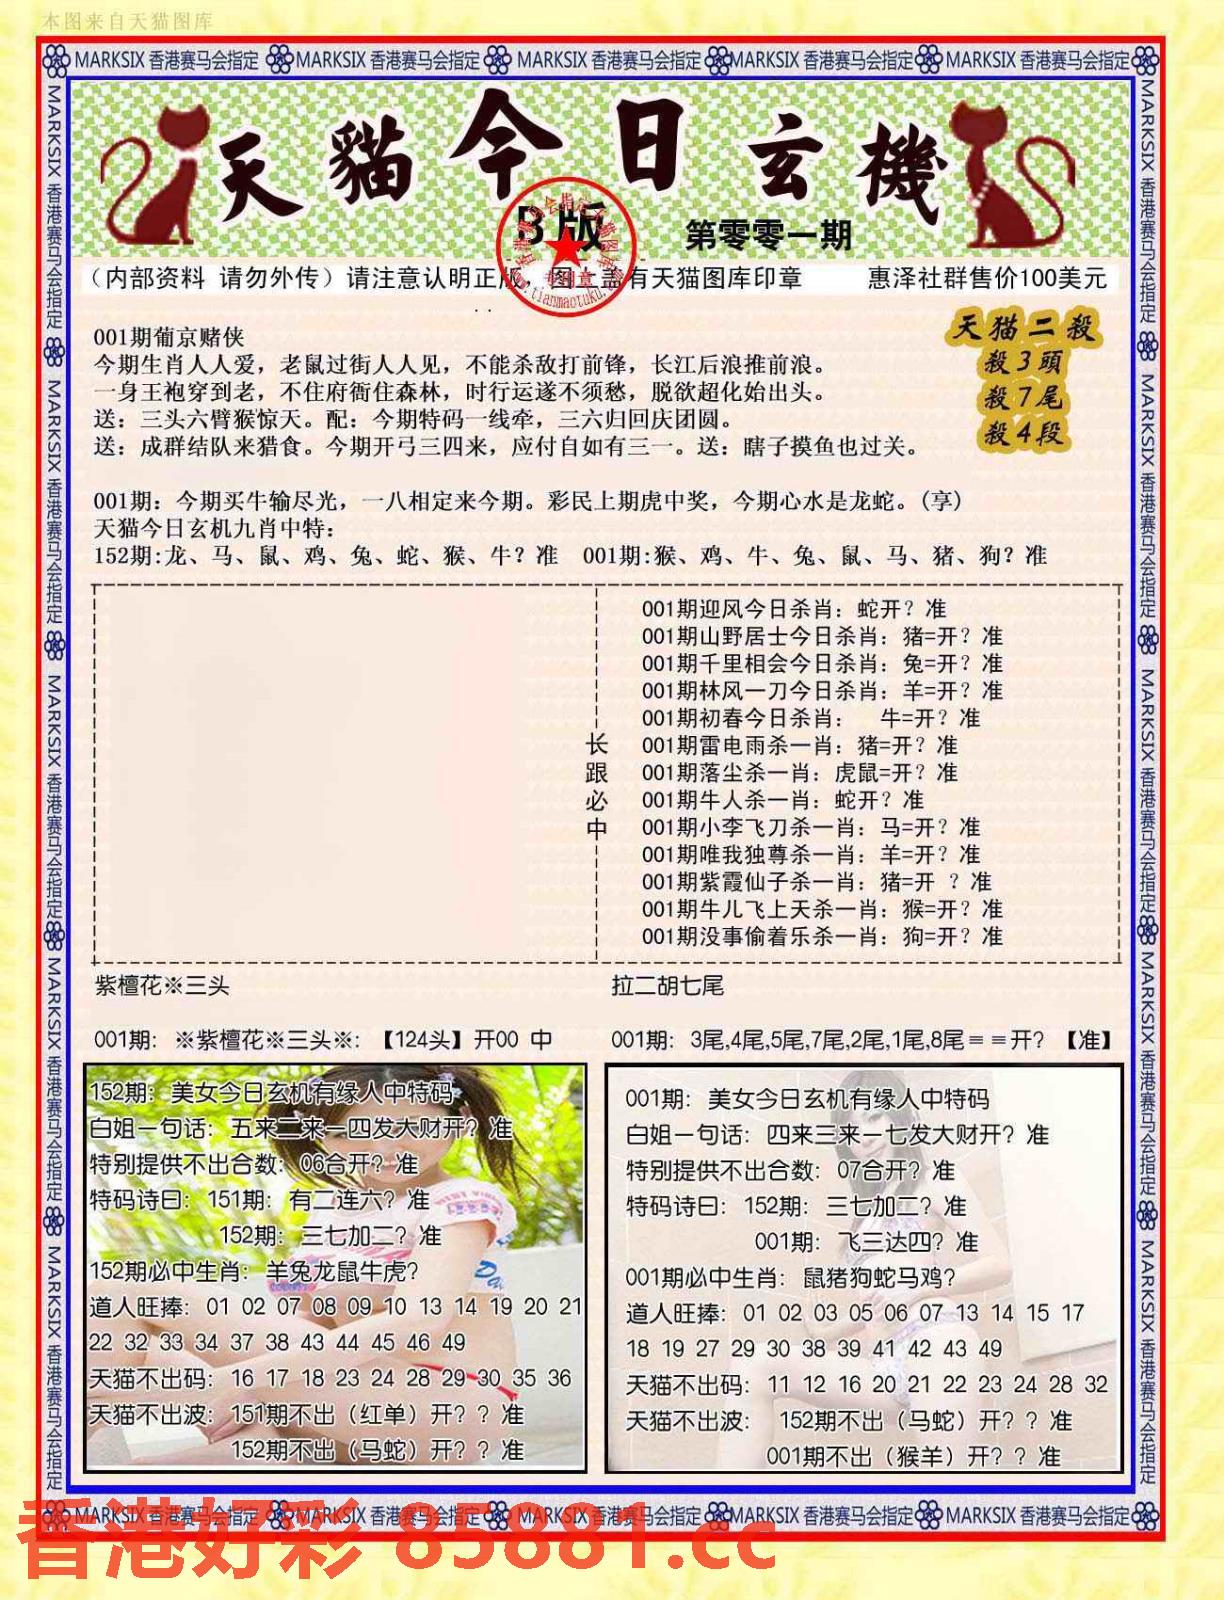 本图来自天猫图库
MARKSIX 香港赛马会指定 MARKSIX 香港赛马会指定 MARKSIX 香港赛马会指定 MARKSIX 香港赛马会指定 MARKSIX 香港赛马会指定
MARKSIX 香港赛马会指定 MARKSIX 香港赛马会指定 MARKSIX 香港赛马会指定 MARKSIX 香港赛马会指定 MARKSIX 香港赛马会指定
MARKSIX 香港赛马会指定 MARKSIX 香港赛马会指定 MARKSIX 香港赛马会指定 MARKSIX 香港赛马会指定 MARKSIX 香港赛马会指定
天貓今日玄機
B版
第零零一期
专用章
www.tianmaotuku.
（内部资料 请勿外传）请注意认明正版 图上盖有天猫图库印章 惠泽社群售价100美元
天猫二殺
殺3頭
殺7尾
殺4段
001期葡京赌侠
今期生肖人人爱，老鼠过街人人见，不能杀敌打前锋，长江后浪推前浪。
一身王袍穿到老，不住府衙住森林，时行运遂不须愁，脱欲超化始出头。
送：三头六臂猴惊天。配：今期特码一线牵，三六归回庆团圆。
送：成群结队来猎食。今期开弓三四来，应付自如有三一。送：瞎子摸鱼也过关。
001期：今期买牛输尽光，一八相定来今期。彩民上期虎中奖，今期心水是龙蛇。(享)
天猫今日玄机九肖中特：
152期:龙、马、鼠、鸡、兔、蛇、猴、牛？准 001期:猴、鸡、牛、兔、鼠、马、猪、狗？准
长跟必中
001期迎风今日杀肖：蛇开？准
001期山野居士今日杀肖：猪=开？准
001期千里相会今日杀肖：兔=开？准
001期林风一刀今日杀肖：羊=开？准
001期初春今日杀肖： 牛=开？准
001期雷电雨杀一肖：猪=开？准
001期落尘杀一肖：虎鼠=开？准
001期牛人杀一肖：蛇开？准
001期小李飞刀杀一肖：马=开？准
001期唯我独尊杀一肖：羊=开？准
001期紫霞仙子杀一肖：猪=开 ？准
001期牛儿飞上天杀一肖：猴=开？准
001期没事偷着乐杀一肖：狗=开？准
紫檀花※三头
001期：※紫檀花※三头※：【124头】开00 中
拉二胡七尾
001期：3尾,4尾,5尾,7尾,2尾,1尾,8尾＝＝开？【准】
152期：美女今日玄机有缘人中特码
白姐一句话：五来二来一四发大财开？准
特别提供不出合数：06合开？准
特码诗曰：151期：有二连六？准
152期：三七加二？准
152期必中生肖：羊兔龙鼠牛虎？
道人旺捧：01 02 07 08 09 10 13 14 19 20 21
22 32 33 34 37 38 43 44 45 46 49
天猫不出码：16 17 18 23 24 28 29 30 35 36
天猫不出波：151期不出（红单）开？？准
152期不出（马蛇）开？？准
001期：美女今日玄机有缘人中特码
白姐一句话：四来三来一七发大财开？准
特别提供不出合数：07合开？准
特码诗曰：152期：三七加二？准
001期：飞三达四？准
001期必中生肖：鼠猪狗蛇马鸡？
道人旺捧：01 02 03 05 06 07 13 14 15 17
18 19 27 29 30 38 39 41 42 43 49
天猫不出码：11 12 16 20 21 22 23 24 28 32
天猫不出波： 152期不出（马蛇）开？？准
001期不出（猴羊）开？？准
MARKSIX 香港赛马会指定 MARKSIX 香港赛马会指定 MARKSIX 香港赛马会指定 MARKSIX 香港赛马会指定 MARKSIX 香港赛马会指定
香港好彩 85881.cc